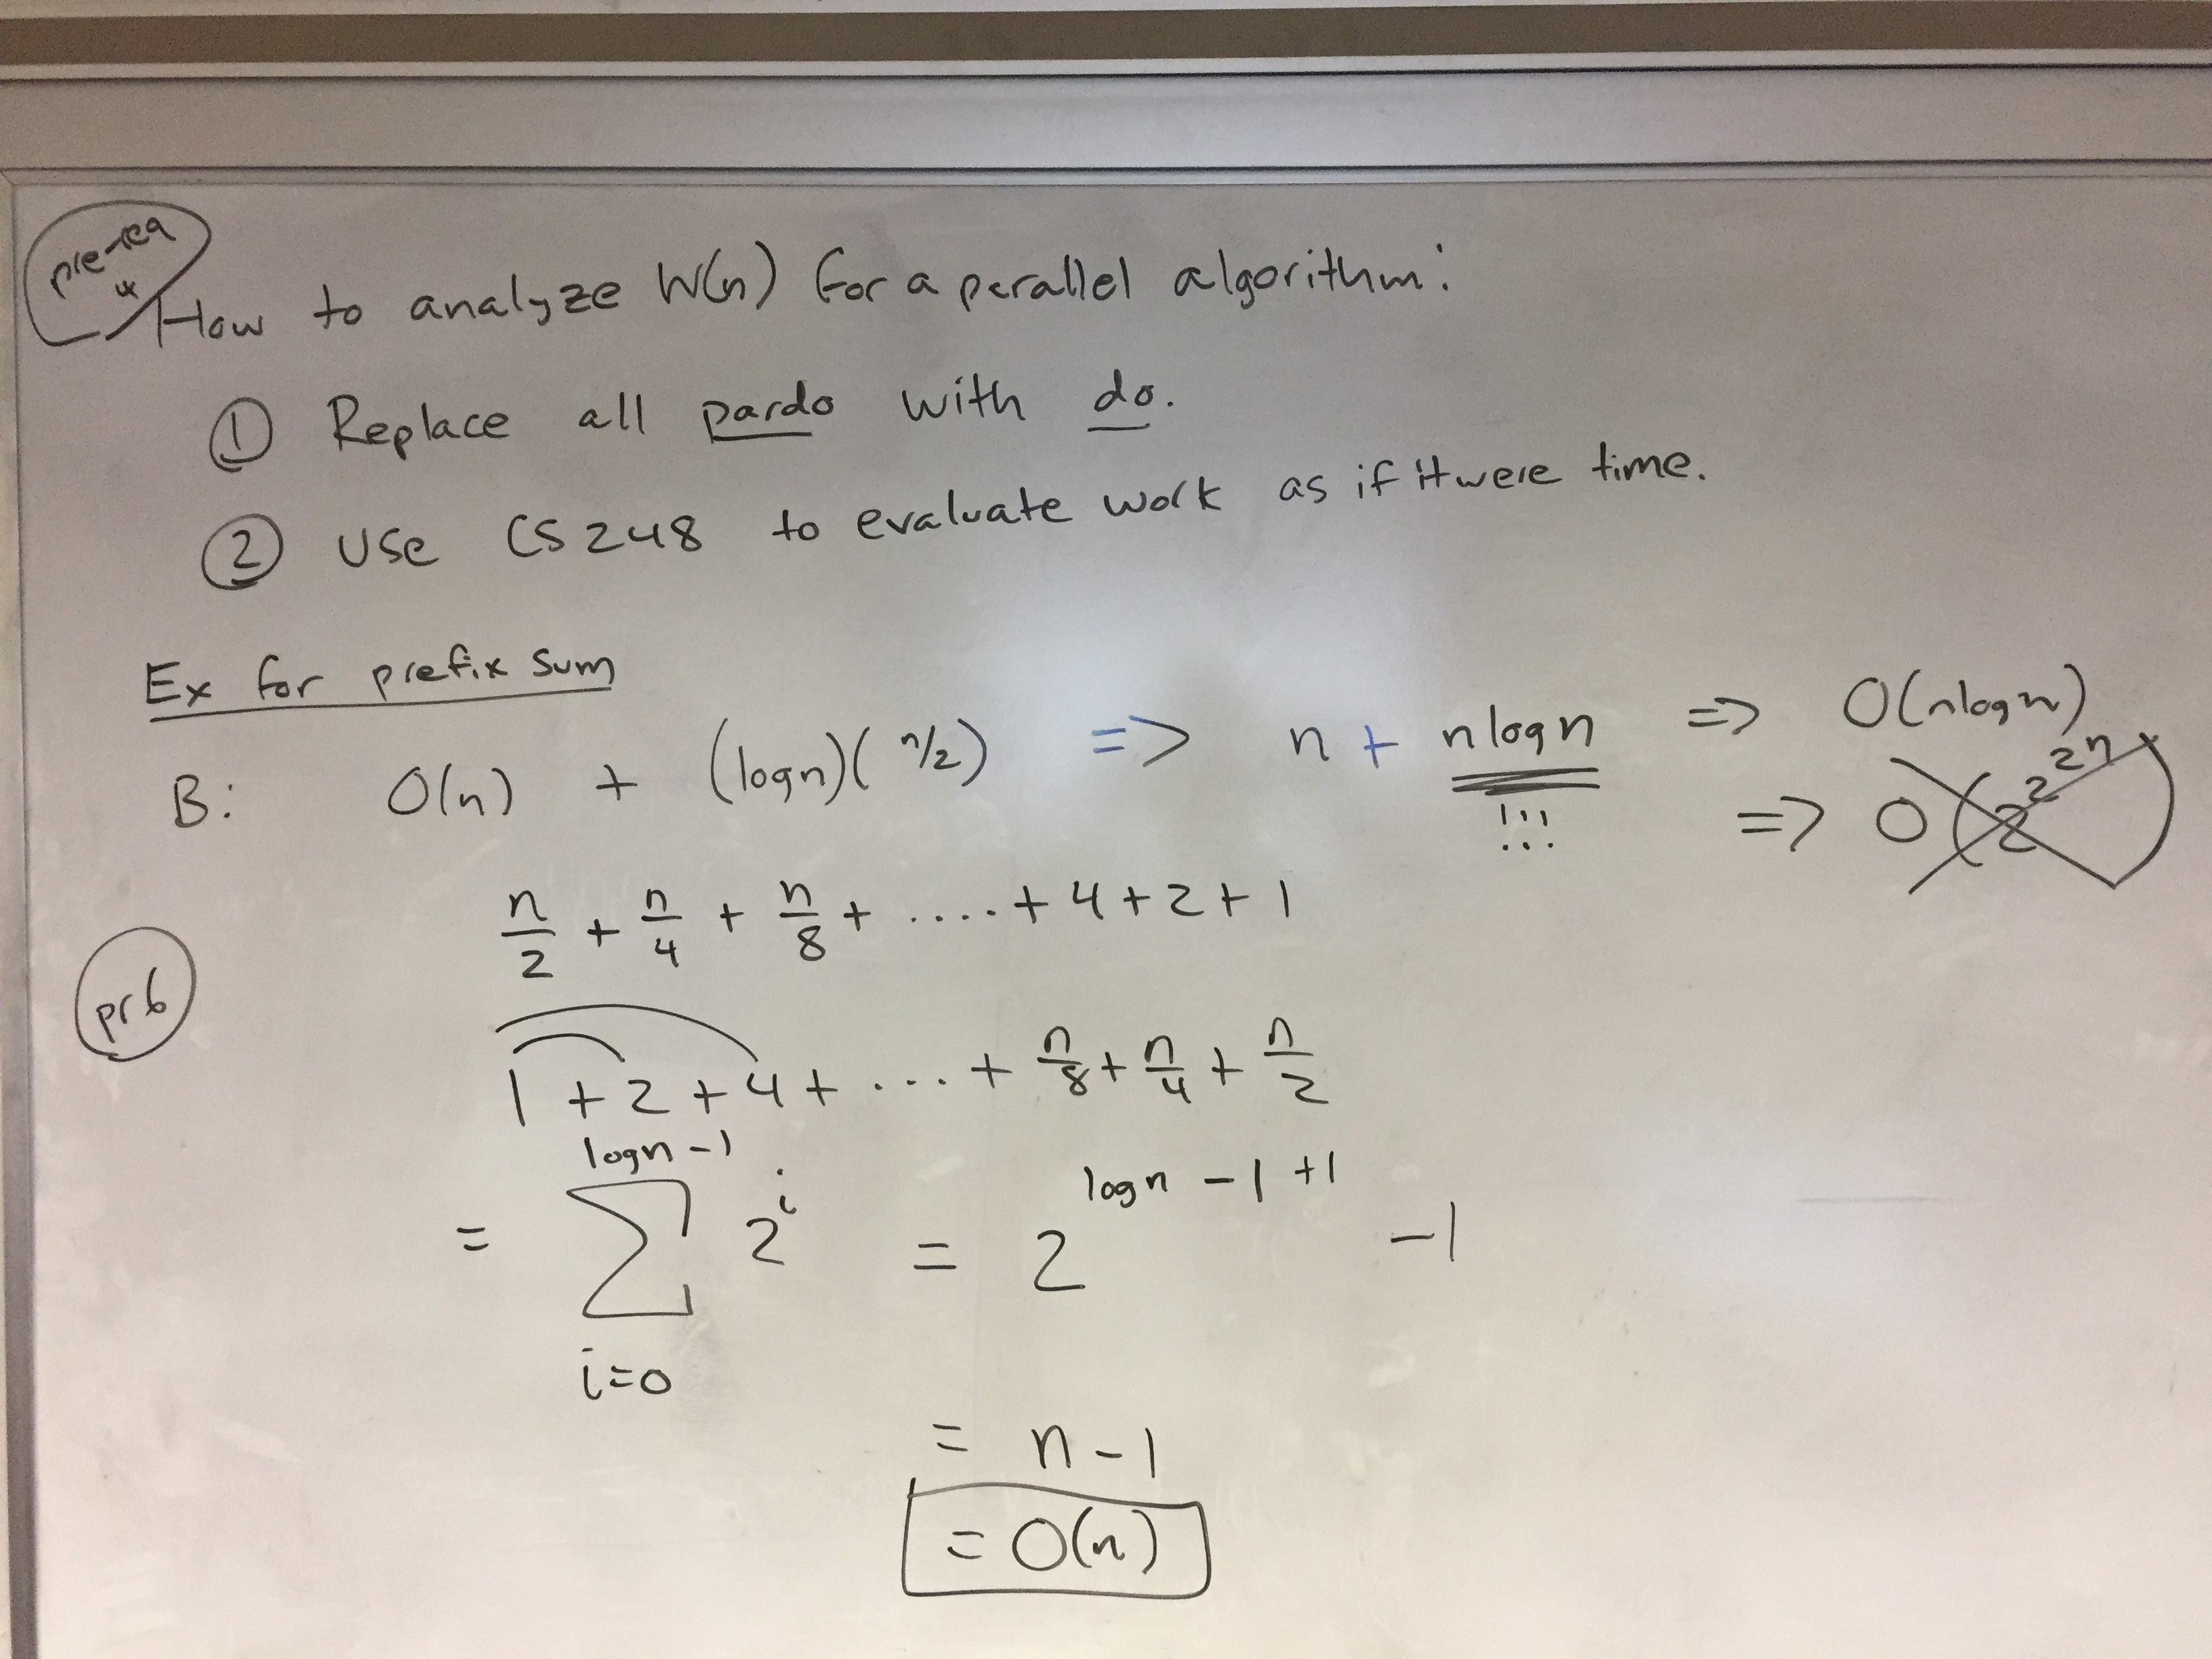 pre-req
*
How to analyze W(n) for a parallel algorithm:
① Replace all pardo with do.
② Use CS248 to evaluate work as if it were time.
Ex for prefix sum
B: O(n) + (logn)(n/2) => n + nlogn => O(nlogn)
!!! => O(2^2^2n)
n/2 + n/4 + n/8 + .... + 4 + 2 + 1
pr6
1 + 2 + 4 + ... + n/8 + n/4 + n/2
= ∑_{i=0}^{logn-1} 2^i = 2^{logn -1 +1} -1
= n-1
= O(n)